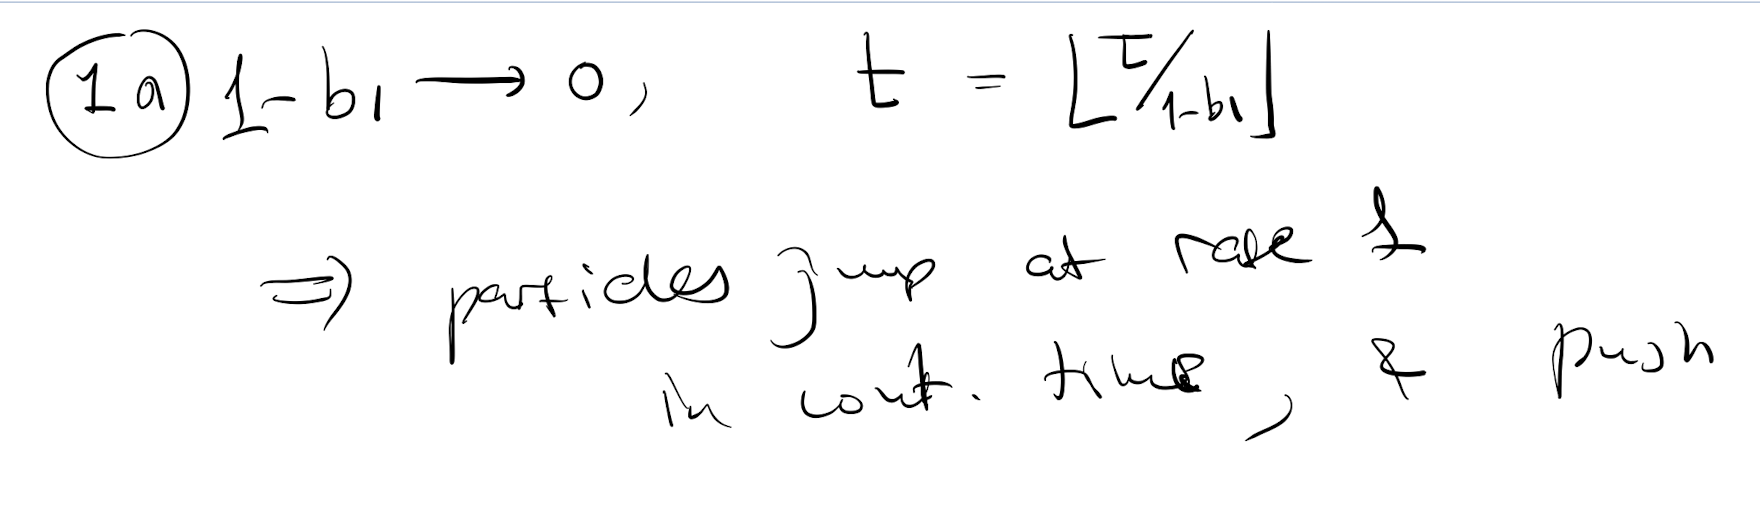 (1a) 1-b1 → 0, t = ⌊τ/1-b1⌋
⇒ particles jump at rate 1
in cont. time, & push